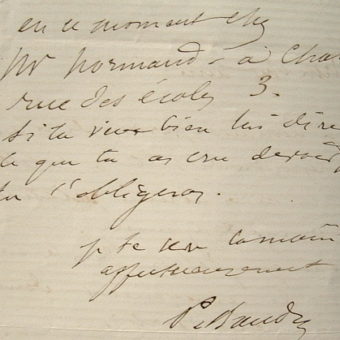 en ce moment chez
Mr Normand - à Cha
rue des écoles 3.
si tu veux bien lui dire
ce que tu as cru devoir
tu l'obligeras.
je te
affectueusement
P. Baudry